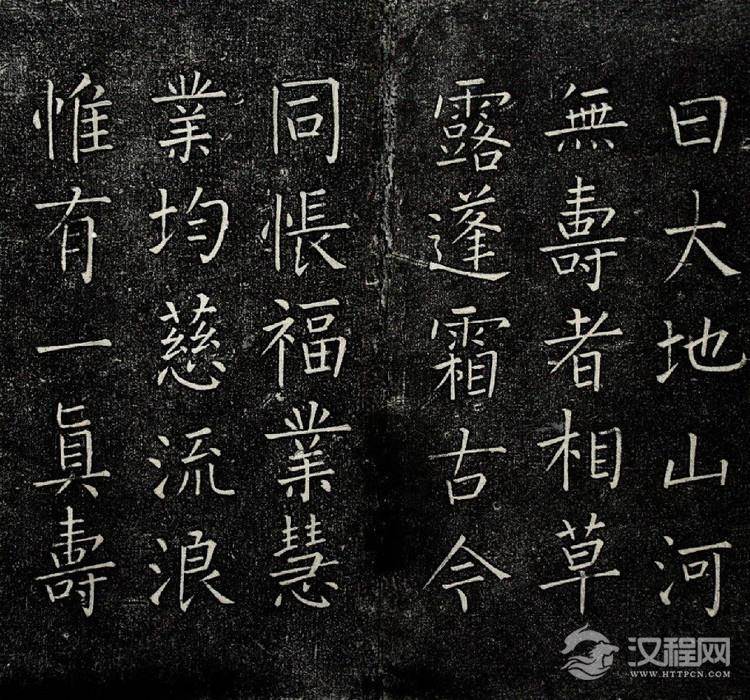 曰大地山河
無壽者相草
露蓬霜古今
同悵福業慧
業均慈流浪
惟有一真壽
汉程网
WWW.HTTPCN.COM